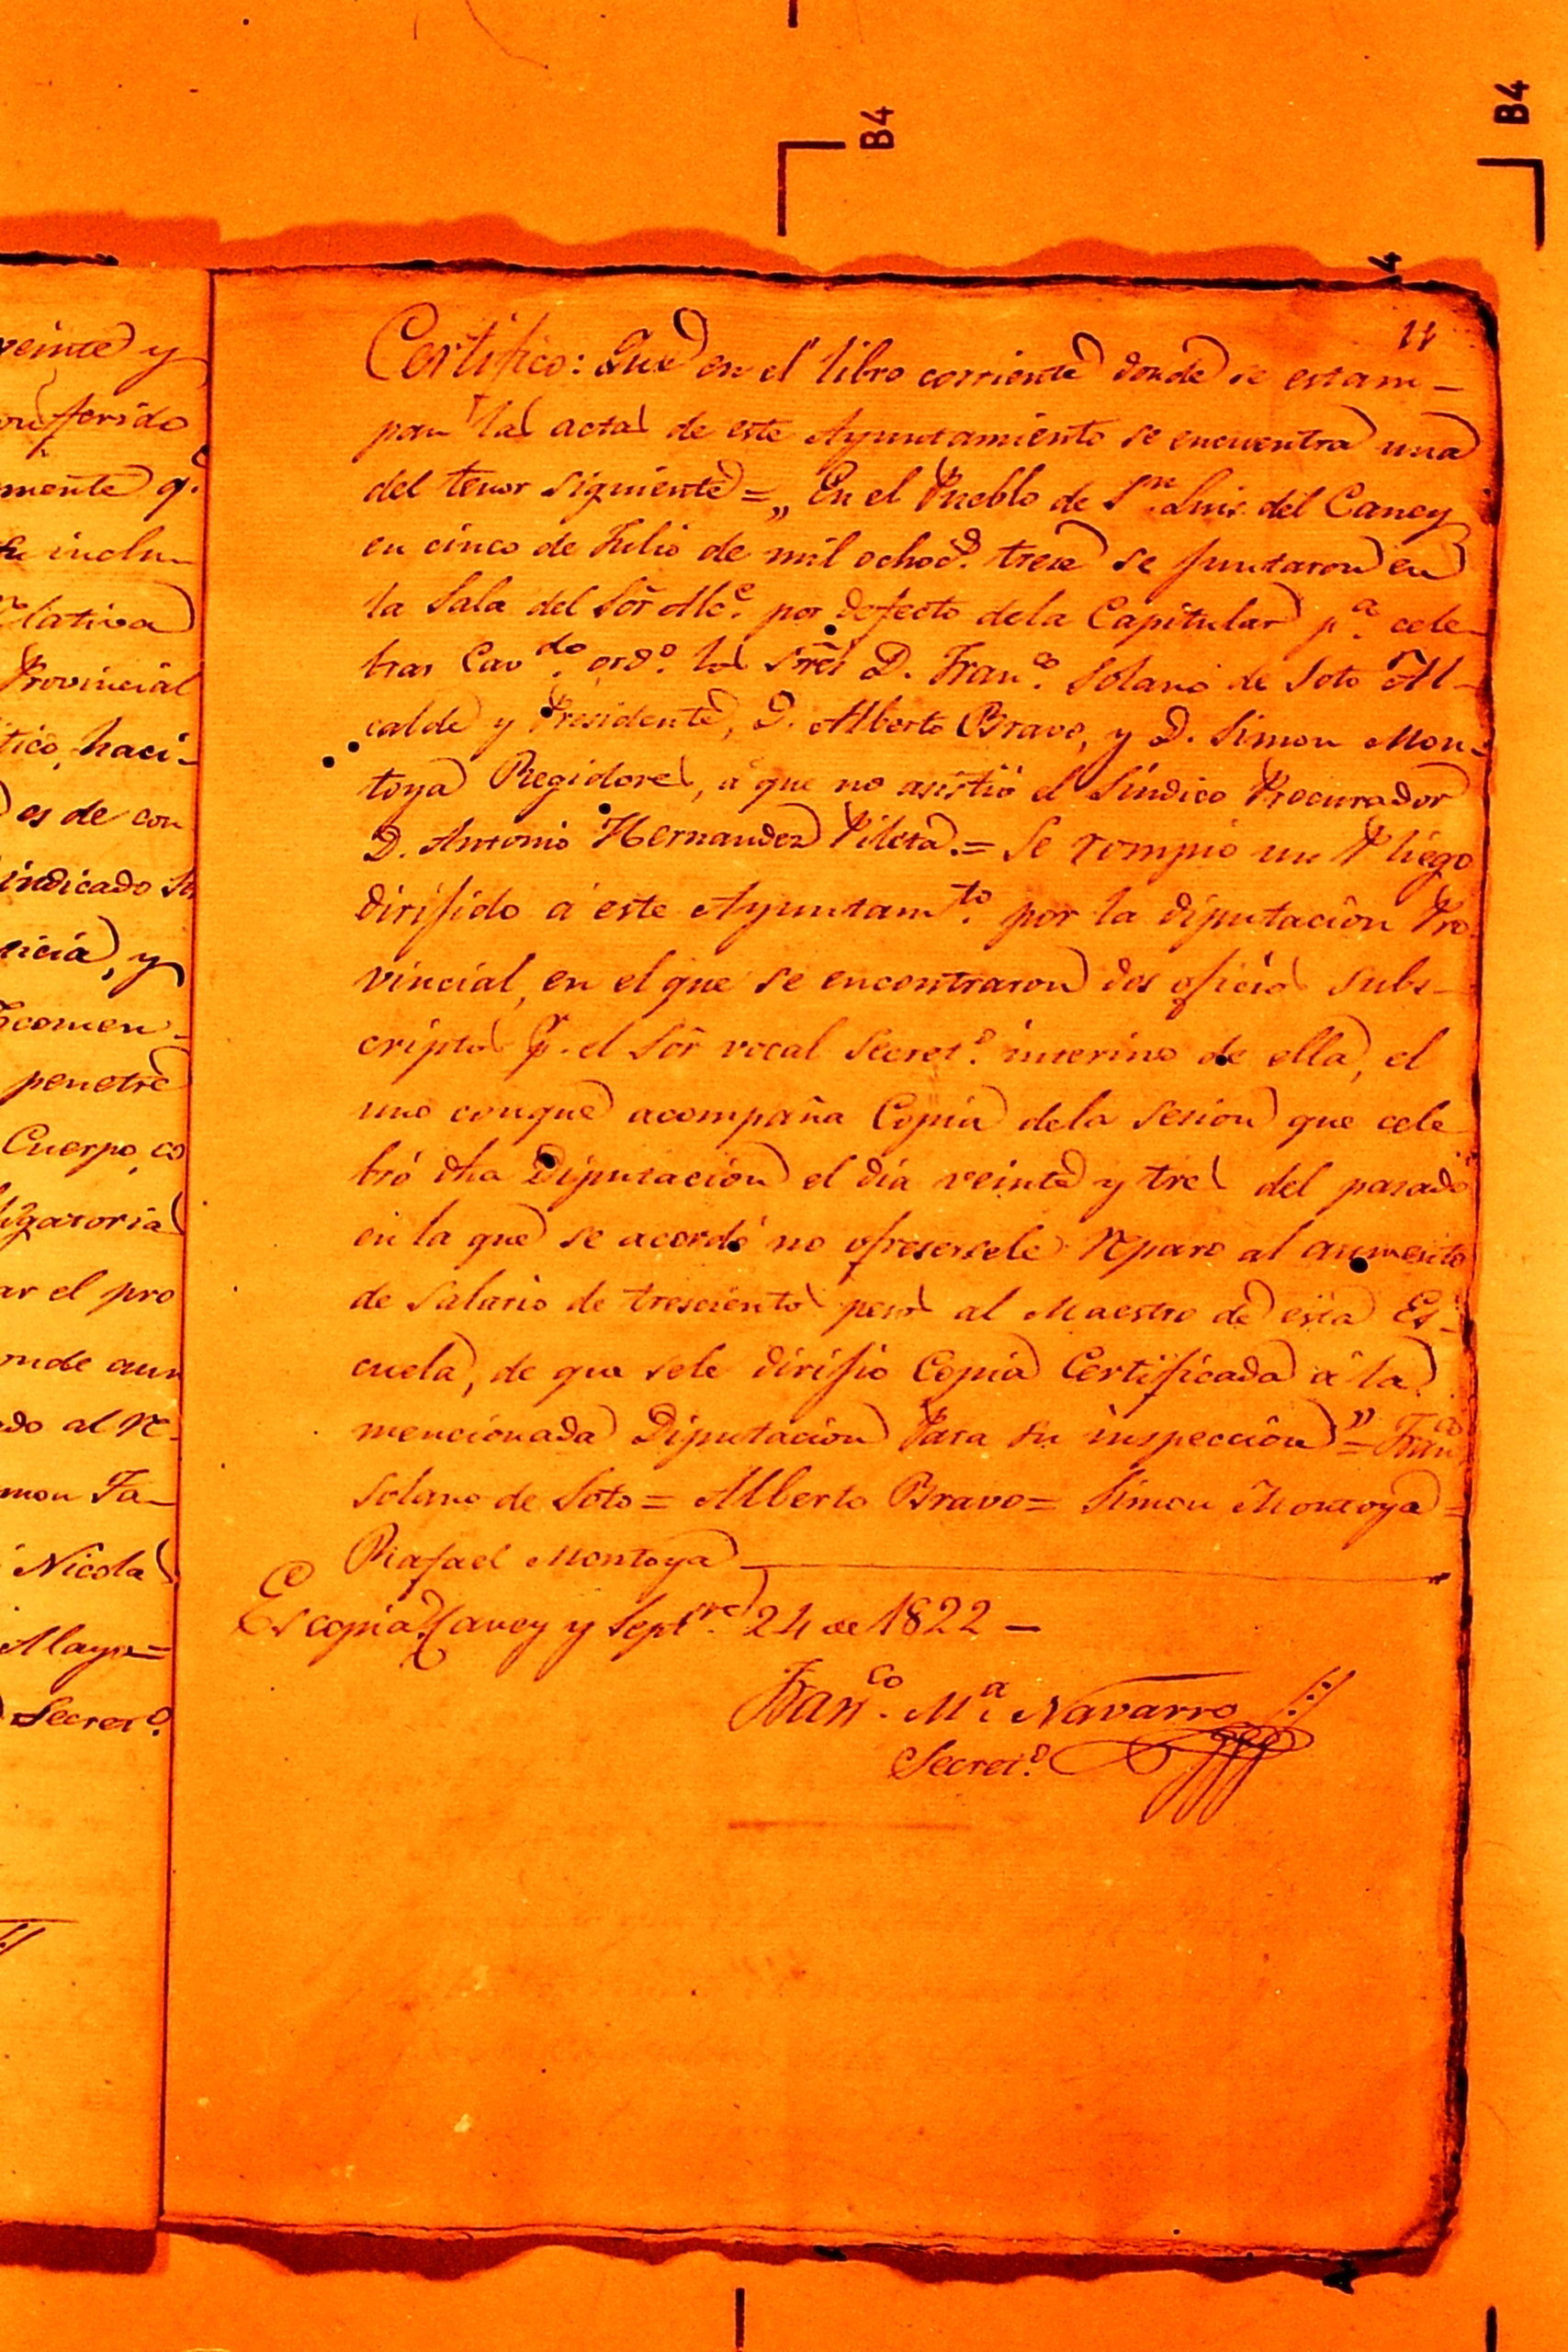 B4
B4
4
11
Certifico: Que en el libro corriente donde se estam-
pan las actas de este Ayuntamiento se encuentra una
del tenor siguiente = „ En el Pueblo de Sn. Luis del Caney
en cinco de Julio de mil ochocs. trese se juntaron en
la Sala del Sōr Alce. por defecto dela Capitular pa. cele-
brar Cavdo. ordo. los Srēs D. Franco. Solano de Soto Al-
calde y Presidente, D. Alberto Bravo, y D. Simon Mon-
toya Regidores, á que no asistió el Síndico Procurador
D. Antonio Hernandez Pileta. = Se rompió un Pliego
dirijido á este Ayuntamto. por la diputación Pro
vincial, en el que se encontraron dos oficios subs-
criptos p. el Sōr vocal Secreto. interino de ella, el
uno conque acompaña Copia dela sesion que cele
bró dha Diputación el dia veinte y tres del pasado
en la que se acordó no ofresersele reparo al aumento
de salario de trescientos pesos al Maestro de esta Es-
cuela, de que sele dirijio Copia Certificada á la
mencionada Diputación Para su inspección" = Franco.
Solano de Soto = Alberto Bravo = Simon Montoya =
Rafael Montoya
Es copia Caney y Septre. 24 de 1822 —
Franco. Ma. Navarro
Secreto.
veinte y
mente q.
su inclu-
Provincial
tico, haci-
es de con
indicado
y
penetre
Cuerpo, co
ar el pro
onde aun
do al re-
mon Ta-
Nicolas
Secreto.